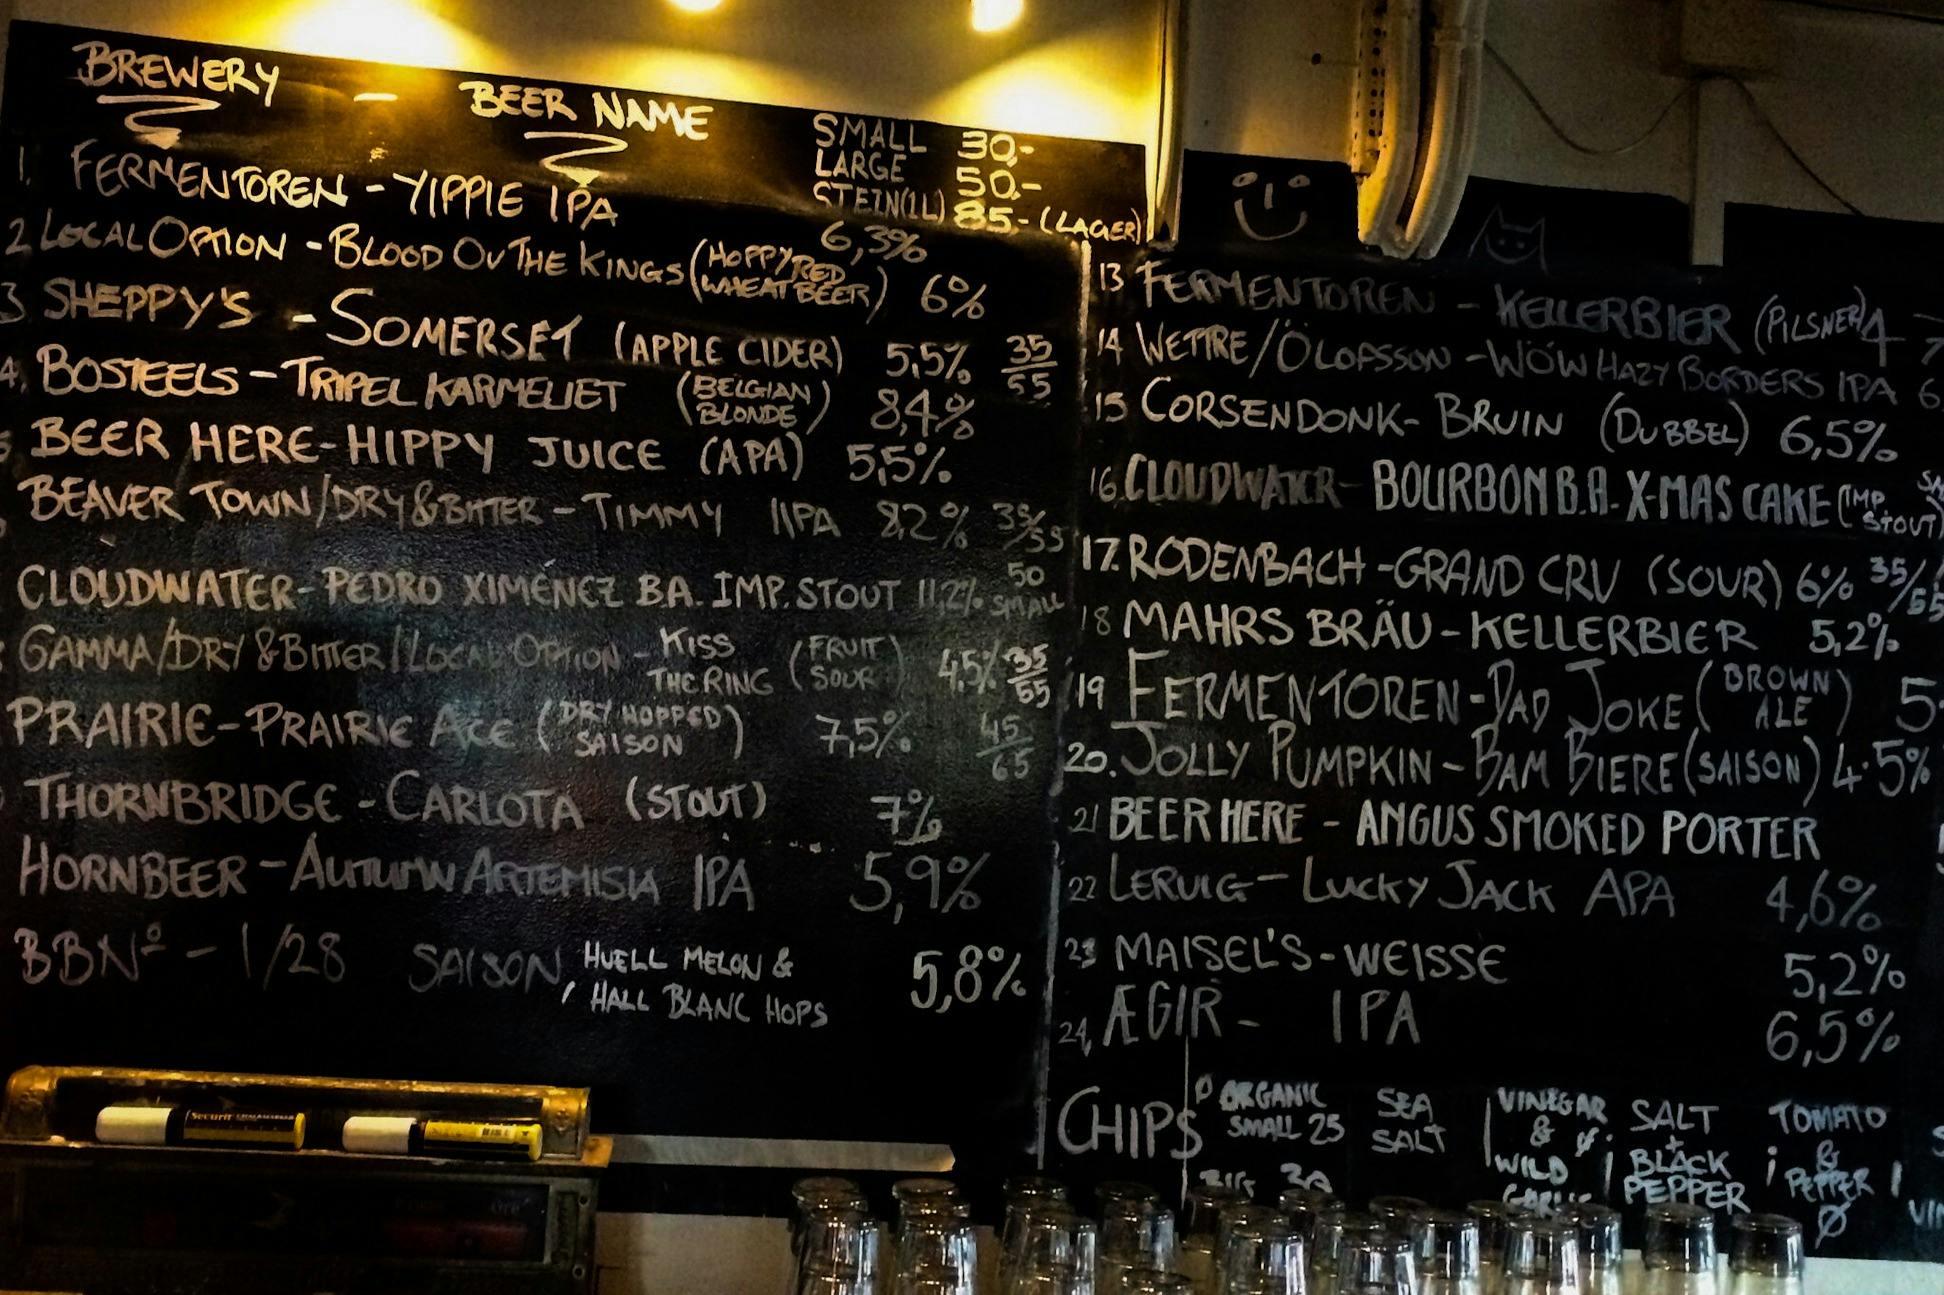 BREWERY - BEER NAME
SMALL 30,-
LARGE 50,-
STEIN(1L) 85,- (LAGER)
1. FERMENTOREN - YIPPIE IPA 6,3%
2 LOCAL OPTION - BLOOD OV THE KINGS (HOPPY RED WHEAT BEER) 6%
3 SHEPPY'S - SOMERSET (APPLE CIDER) 5,5% 35/55
4, BOSTEELS - TRIPEL KARMELIET (BELGIAN BLONDE) 8,4%
5 BEER HERE - HIPPY JUICE (APA) 5,5%
BEAVER TOWN/DRY & BITTER - TIMMY IIPA 8,2% 35/55
CLOUDWATER - PEDRO XIMENEZ B.A. IMP. STOUT 11,2% 50 SMALL
GAMMA/DRY & BITTER/LOCAL OPTION - KISS THE RING (FRUIT SOUR) 4,5% 35/55
PRAIRIE - PRAIRIE ACE (DRY HOPPED SAISON) 7,5% 45/65
THORNBRIDGE - CARLOTA (STOUT) 7%
HORNBEER - AUTUMN ARTEMISIA IPA 5,9%
BBNº - 1/28 SAISON, HUELL MELON & HALL BLANC HOPS 5,8%
13 FERMENTOREN - KELLERBIER (PILSNER) 4
14 WETTRE/ÖLOFSSON - WÖW HAZY BORDERS IPA 6
15 CORSENDONK - BRUIN (DUBBEL) 6,5%
16. CLOUDWATER - BOURBON B.A. X-MAS CAKE (IMP. STOUT)
17. RODENBACH - GRAND CRU (SOUR) 6% 35/55
18 MAHRS BRÄU - KELLERBIER 5,2%
19 FERMENTOREN - DAD JOKE (BROWN ALE) 5
20. JOLLY PUMPKIN - BAM BIERE (SAISON) 4.5%
21 BEER HERE - ANGUS SMOKED PORTER
22 LERVIG - LUCKY JACK APA 4,6%
23 MAISEL'S - WEISSE 5,2%
24, ÆGIR - IPA 6,5%
CHIPS
ORGANIC
SMALL 25
BIG 30
SEA
SALT
VINEGAR
&
WILD
GARLIC
SALT
+
BLACK
PEPPER
TOMATO
&
PEPPER
Securit